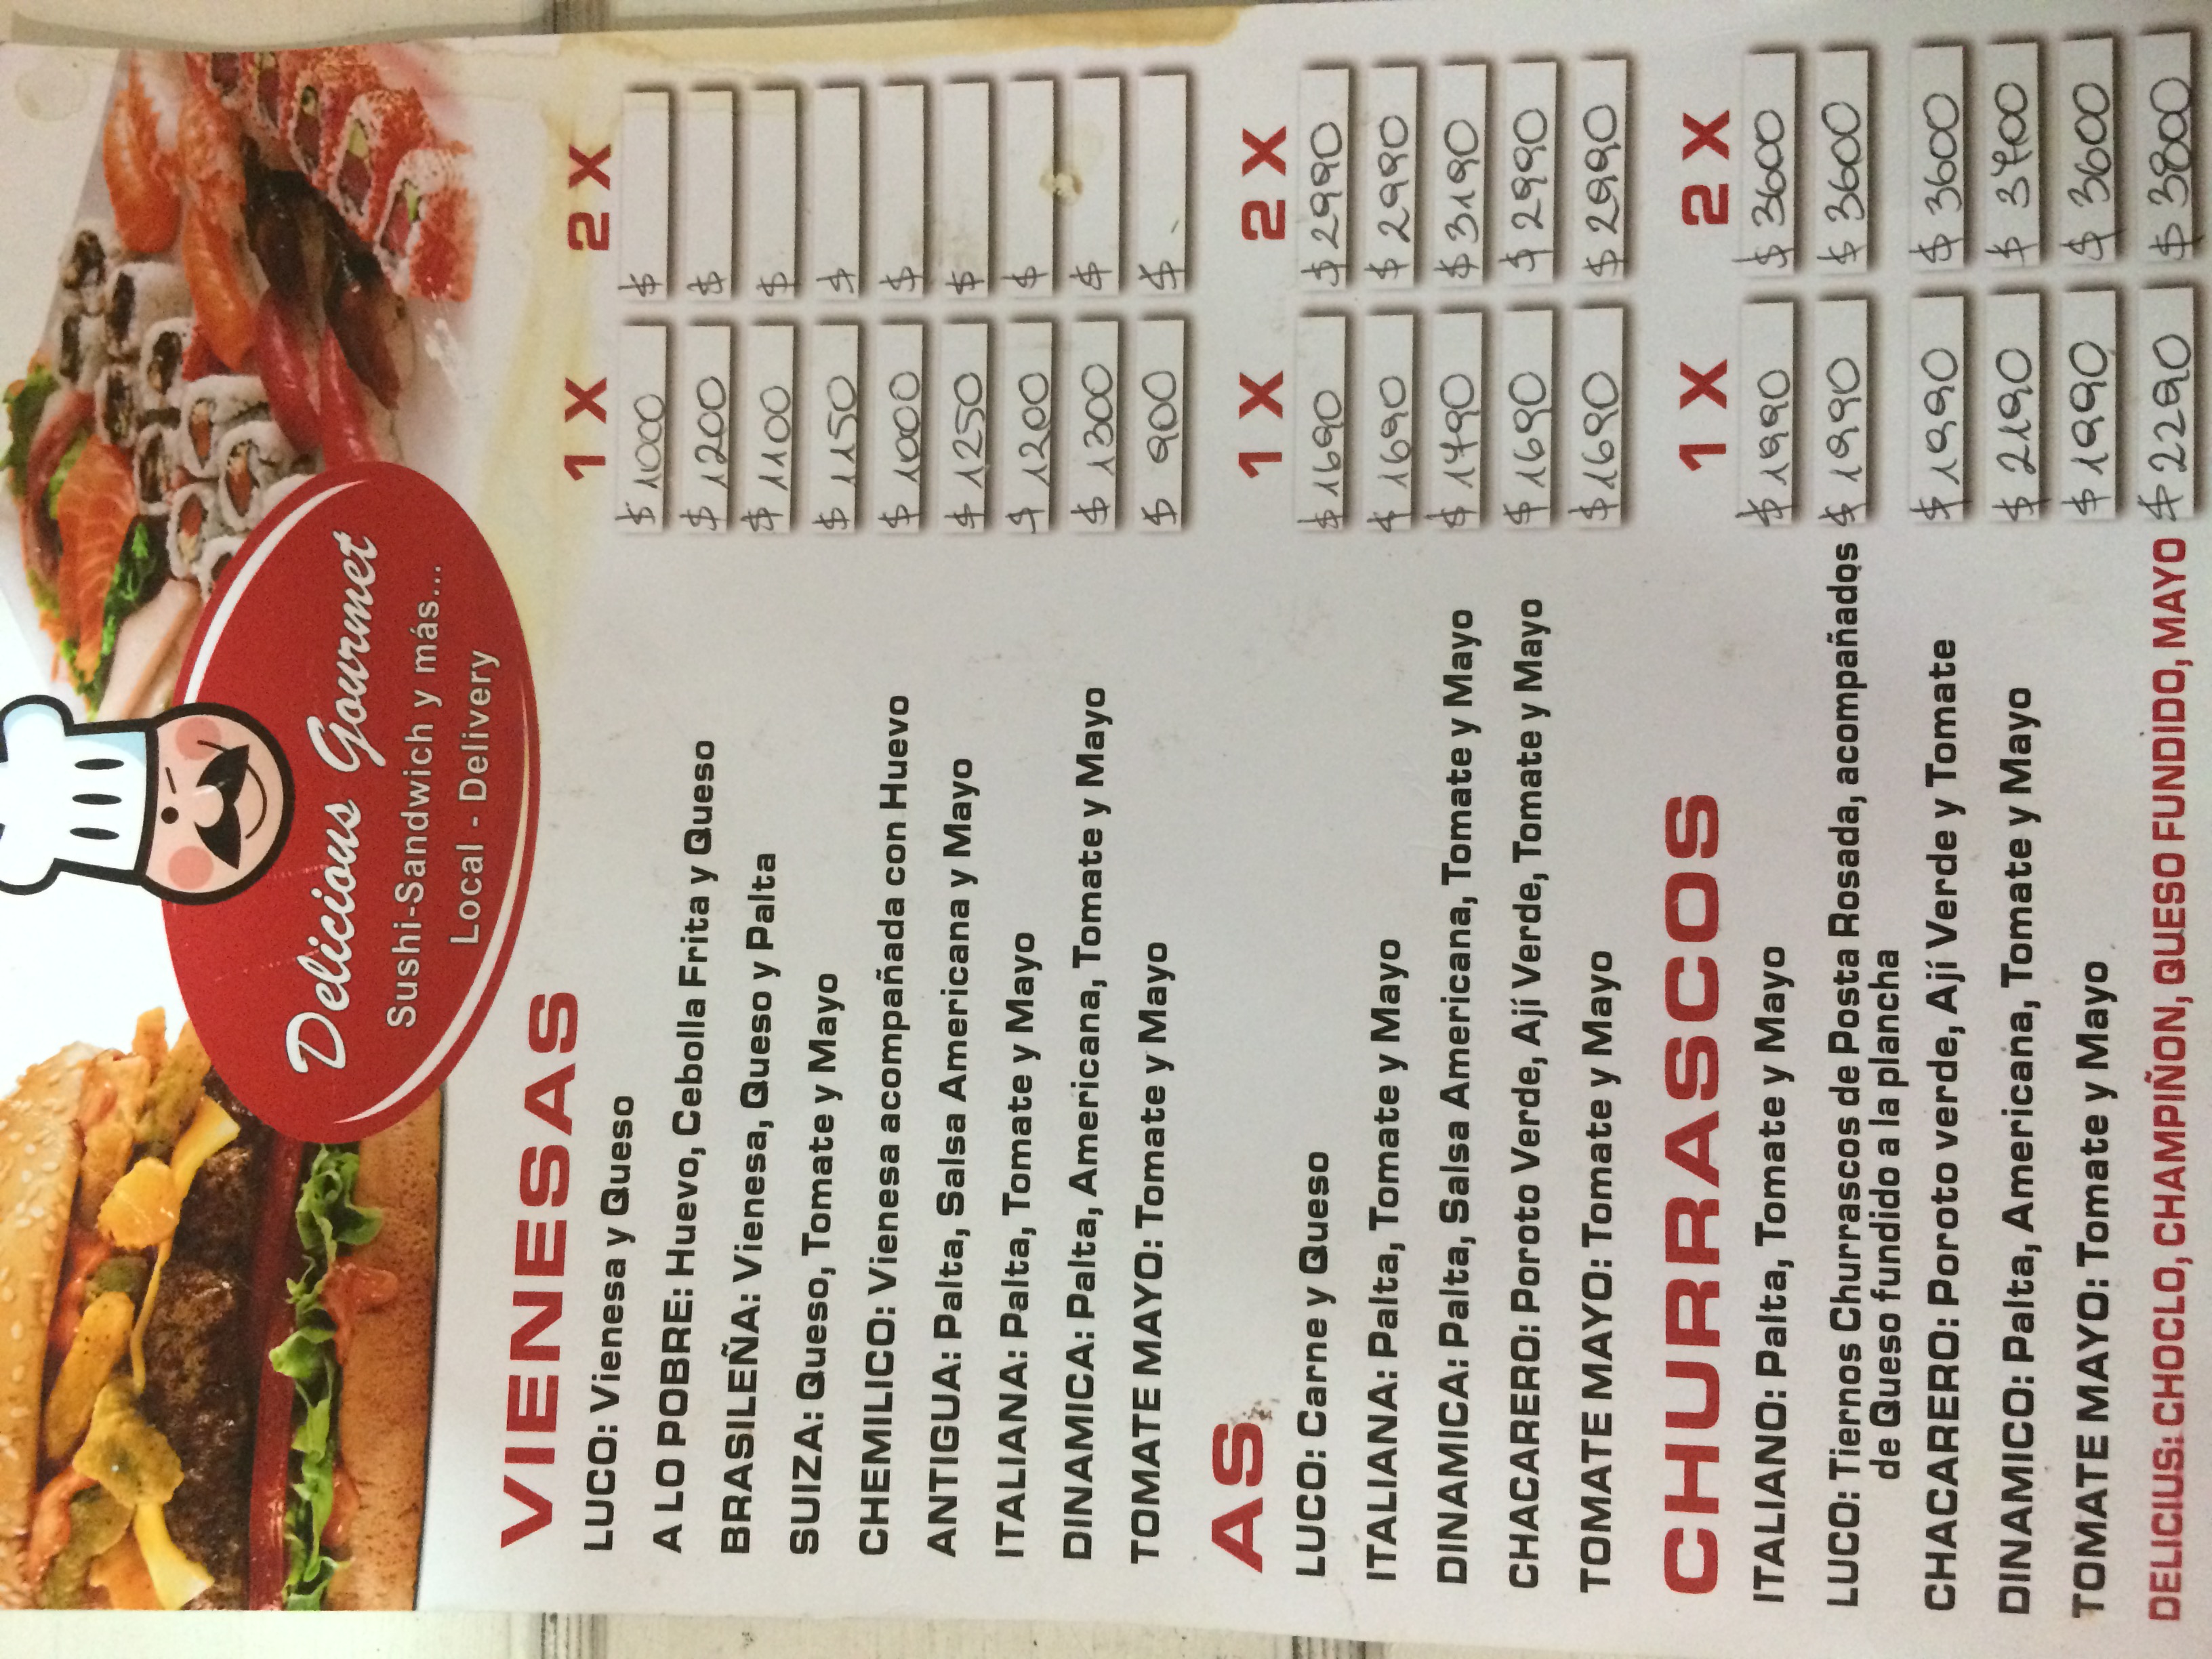 Delicious Gourmet
Sushi-Sandwich y más...
Local - Delivery
VIENESAS 1X 2X
LUCO: Vienesa y Queso $1000 $
A LO POBRE: Huevo, Cebolla Frita y Queso $1200 $
BRASILEÑA: Vienesa, Queso y Palta $1100 $
SUIZA: Queso, Tomate y Mayo $1150 $
CHEMILICO: Vienesa acompañada con Huevo $1000 $
ANTIGUA: Palta, Salsa Americana y Mayo $1250 $
ITALIANA: Palta, Tomate y Mayo $1200 $
DINAMICA: Palta, Americana, Tomate y Mayo $1300 $
TOMATE MAYO: Tomate y Mayo $900 $
AS 1X 2X
LUCO: Carne y Queso $1690 $2990
ITALIANA: Palta, Tomate y Mayo $1690 $2990
DINAMICA: Palta, Salsa Americana, Tomate y Mayo $1790 $3190
CHACARERO: Poroto Verde, Ají Verde, Tomate y Mayo $1690 $2990
TOMATE MAYO: Tomate y Mayo $1690 $2990
CHURRASCOS 1X 2X
ITALIANO: Palta, Tomate y Mayo $1990 $3600
LUCO: Tiernos Churrascos de Posta Rosada, acompañados $1990 $3600
de Queso fundido a la plancha
CHACARERO: Poroto verde, Ají Verde y Tomate $1990 $3600
DINAMICO: Palta, Americana, Tomate y Mayo $2190 $3700
TOMATE MAYO: Tomate y Mayo $1990 $3600
DELICIUS: CHOCLO, CHAMPIÑON, QUESO FUNDIDO, MAYO $2290 $3800